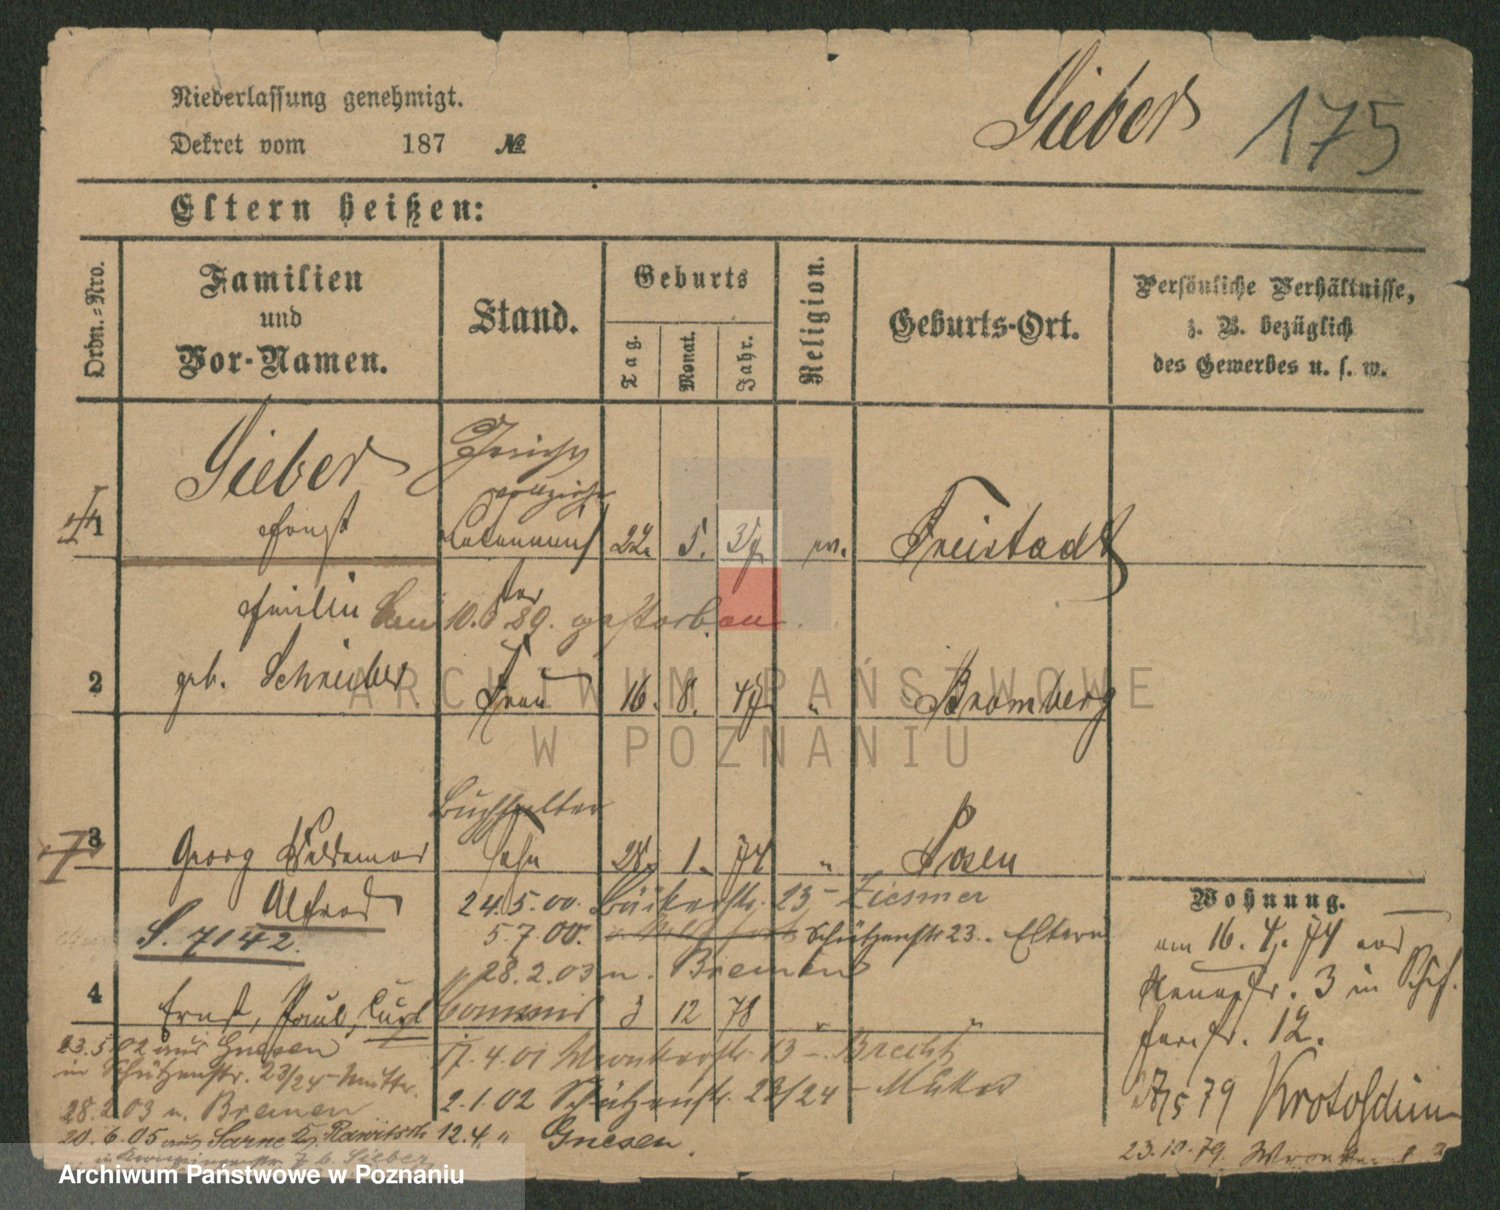 Niederlassung genehmigt.
Dekret vom 187 №
Sieber 175
Eltern heißen:
Ordn.-Nro.
Familien und Vor-Namen.
Stand.
Geburts
Tag.
Monat.
Jahr.
Religion.
Geburts-Ort.
Persönliche Verhältnisse,
z. B. bezüglich
des Gewerbes u. s. w.
Sieber
1 22. 5. Freistadt
10. 89. gestorben.
2 geb. Schreiber Frau 16. 8. " Bromberg
Buchhalter
3 Georg Waldemar Sohn 28. 1. 74 " Posen
Alfred
24.5.00. Bäckerstr. 23 - Ziesmer
S. 7142.
5.7.00. Schützenstr 23.. Eltern
28.2.03 n. Bremen
4 Ernst, Paul, Curt Commis 3 12 78 "
23.5.02 aus Gnesen
in Schützenstr. 23/24 - Mutter.
17.4.01 Wronkerstr. 13 - Brecht
28.2.03 n. Bremen
2.1.02 Schützenstr. 23/24 - Mutter
20.6.05 aus Sarne Rawitsch
12.4. " Gnesen.
7 b. Sieber
Wohnung.
am 16. 4. 74
3 in
12.
79 Krotoschin
23.10.79.
ARCHIWUM PAŃSTWOWE
W POZNANIU
Archiwum Państwowe w Poznaniu